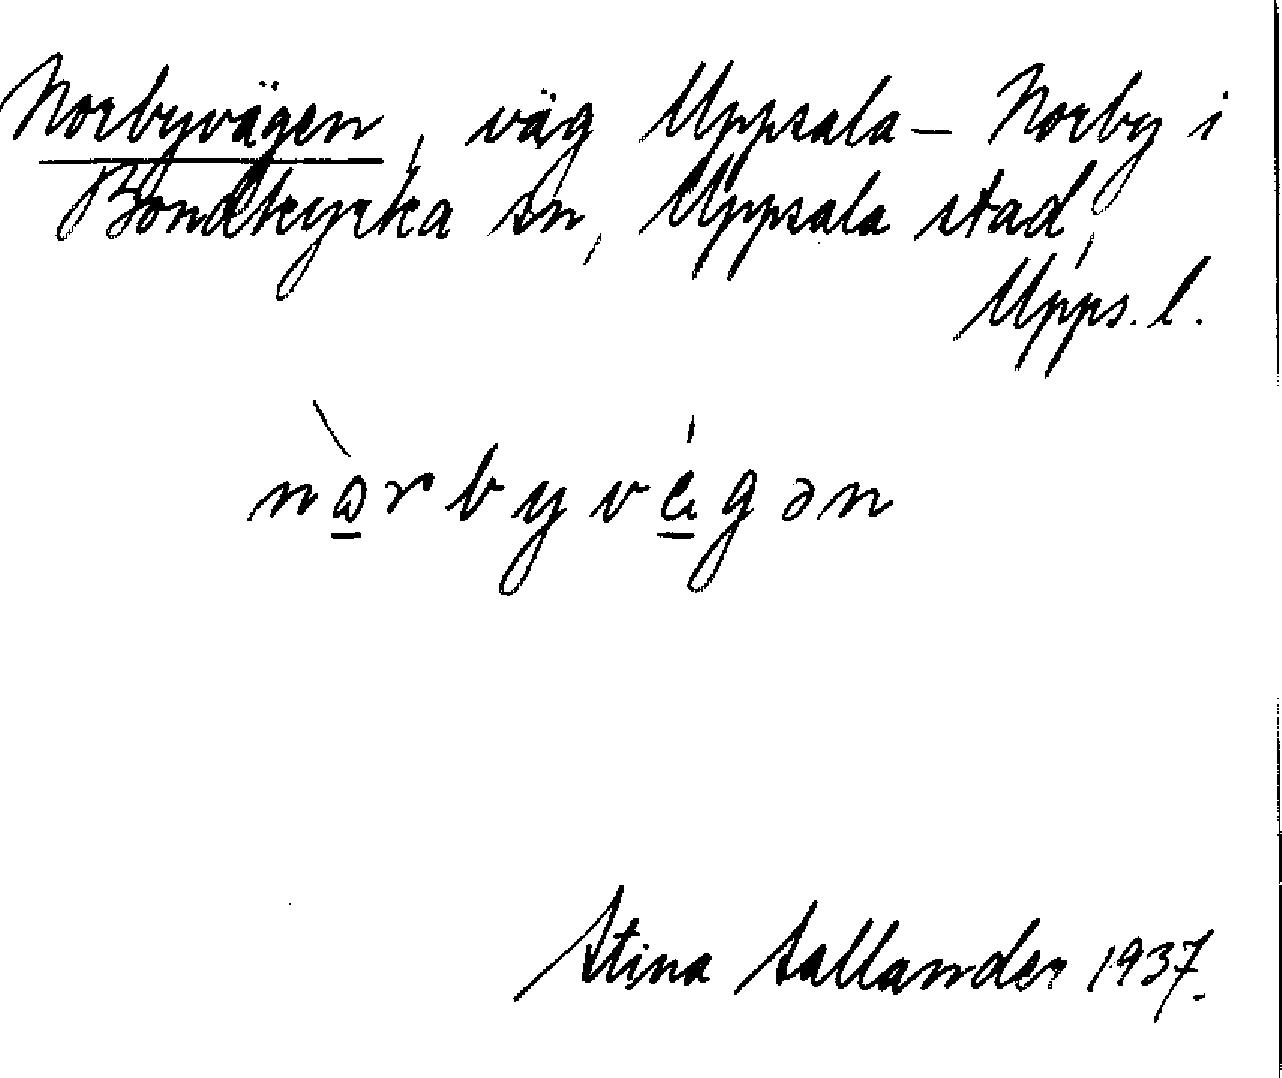 Norbyvägen, väg Uppsala – Norby i
Bondkyrka sn, Uppsala stad,
Upps. l.
nɷ̀rbyvä́gən
Stina Sallander 1937.